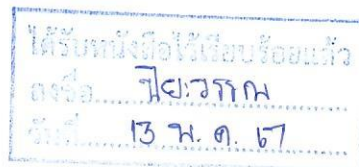 ได้รับหนังสือไว้เรียบร้อยแล้ว
ลงชื่อ ปิยะวรรณ
วันที่ 13 พ.ค. 67